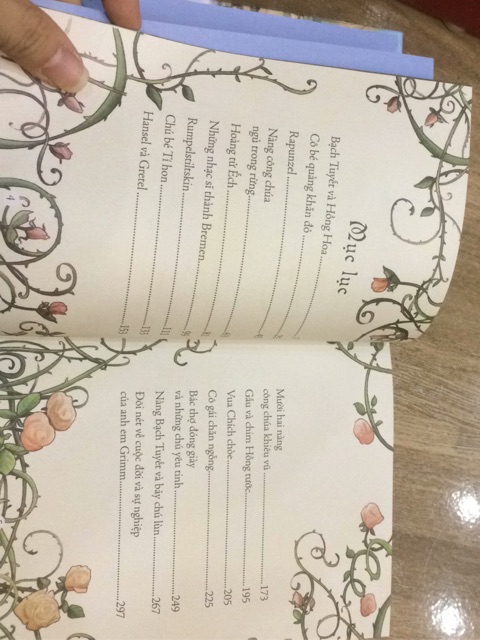 Mục lục
Bạch Tuyết và Hồng Hoa
Cô bé quàng khăn đỏ
Rapunzel
Nàng công chúa
ngủ trong rừng
Hoàng tử Ếch
Những nhạc sĩ thành Bremen
Rumpelstiltskin
Chú bé Tí hon
Hansel và Gretel
Mười hai nàng
công chúa khiêu vũ 173
Gấu và chim Hồng tước 195
Vua Chích chòe 205
Cô gái chăn ngỗng 225
Bác thợ đóng giày
và những chú yêu tinh 249
Nàng Bạch Tuyết và bảy chú lùn 267
Đôi nét về cuộc đời và sự nghiệp
của anh em Grimm 297